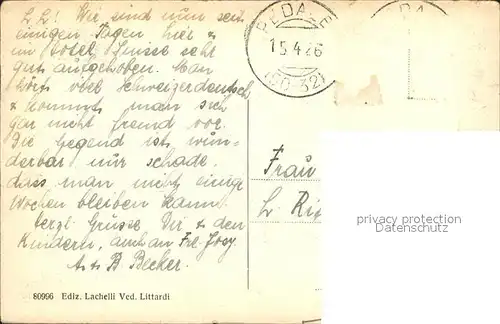 L. L.! Wir sind nun seit
einigen Tagen hier &
im Hotel Suisse sehr
gut aufgehoben. Man
hört viel Schweizerdeutsch
& kommt man sich
gar nicht fremd vor.
Die Gegend ist wun-
derbar nur schade,
dass man nicht einige
Wochen bleiben kann.
herzl. Grüsse Dir & den
Kindern, auch an Frl.
A. & B. Becker.
15.4.26
Frau
privacy protection
ansichtskarten
80996 Ediz. Lachelli Ved. Littardi